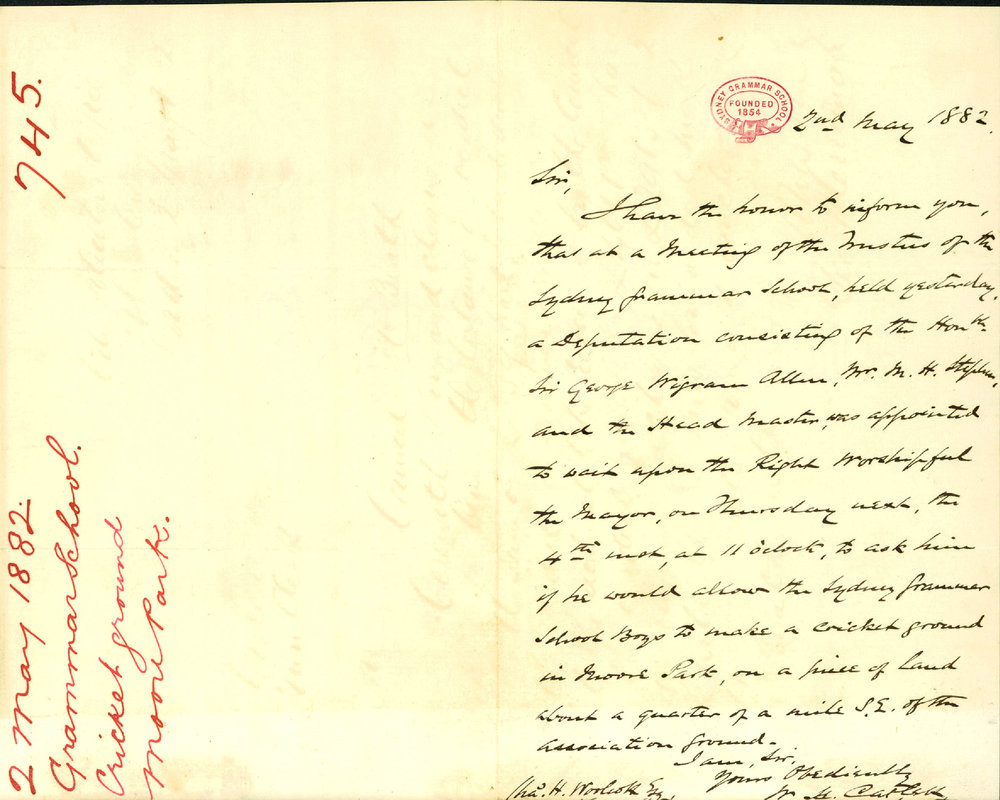 745.
2 May 1882.
Grammar School.
Cricket ground
Moore Park.
SYDNEY GRAMMAR SCHOOL.
FOUNDED
1854
2nd May 1882.
Sir,
I have the honor to inform you,
that at a Meeting of the Trustees of the
Sydney Grammar School, held yesterday,
a Deputation consisting of the Honble
Sir George Wigram Allen, Mr. M. H. Stephen,
and the Head Master, was appointed
to wait upon the Right Worshipful
the Mayor, on Thursday next, the
4th inst, at 11 o'clock, to ask him
if he would allow the Sydney Grammar
School Boys to make a cricket ground
in Moore Park, on a piece of land
about a quarter of a mile S.E. of the
Association ground.
I am, Sir,
Yours Obediently
W. H. Catlett
Chas. H. Woolcott Esq